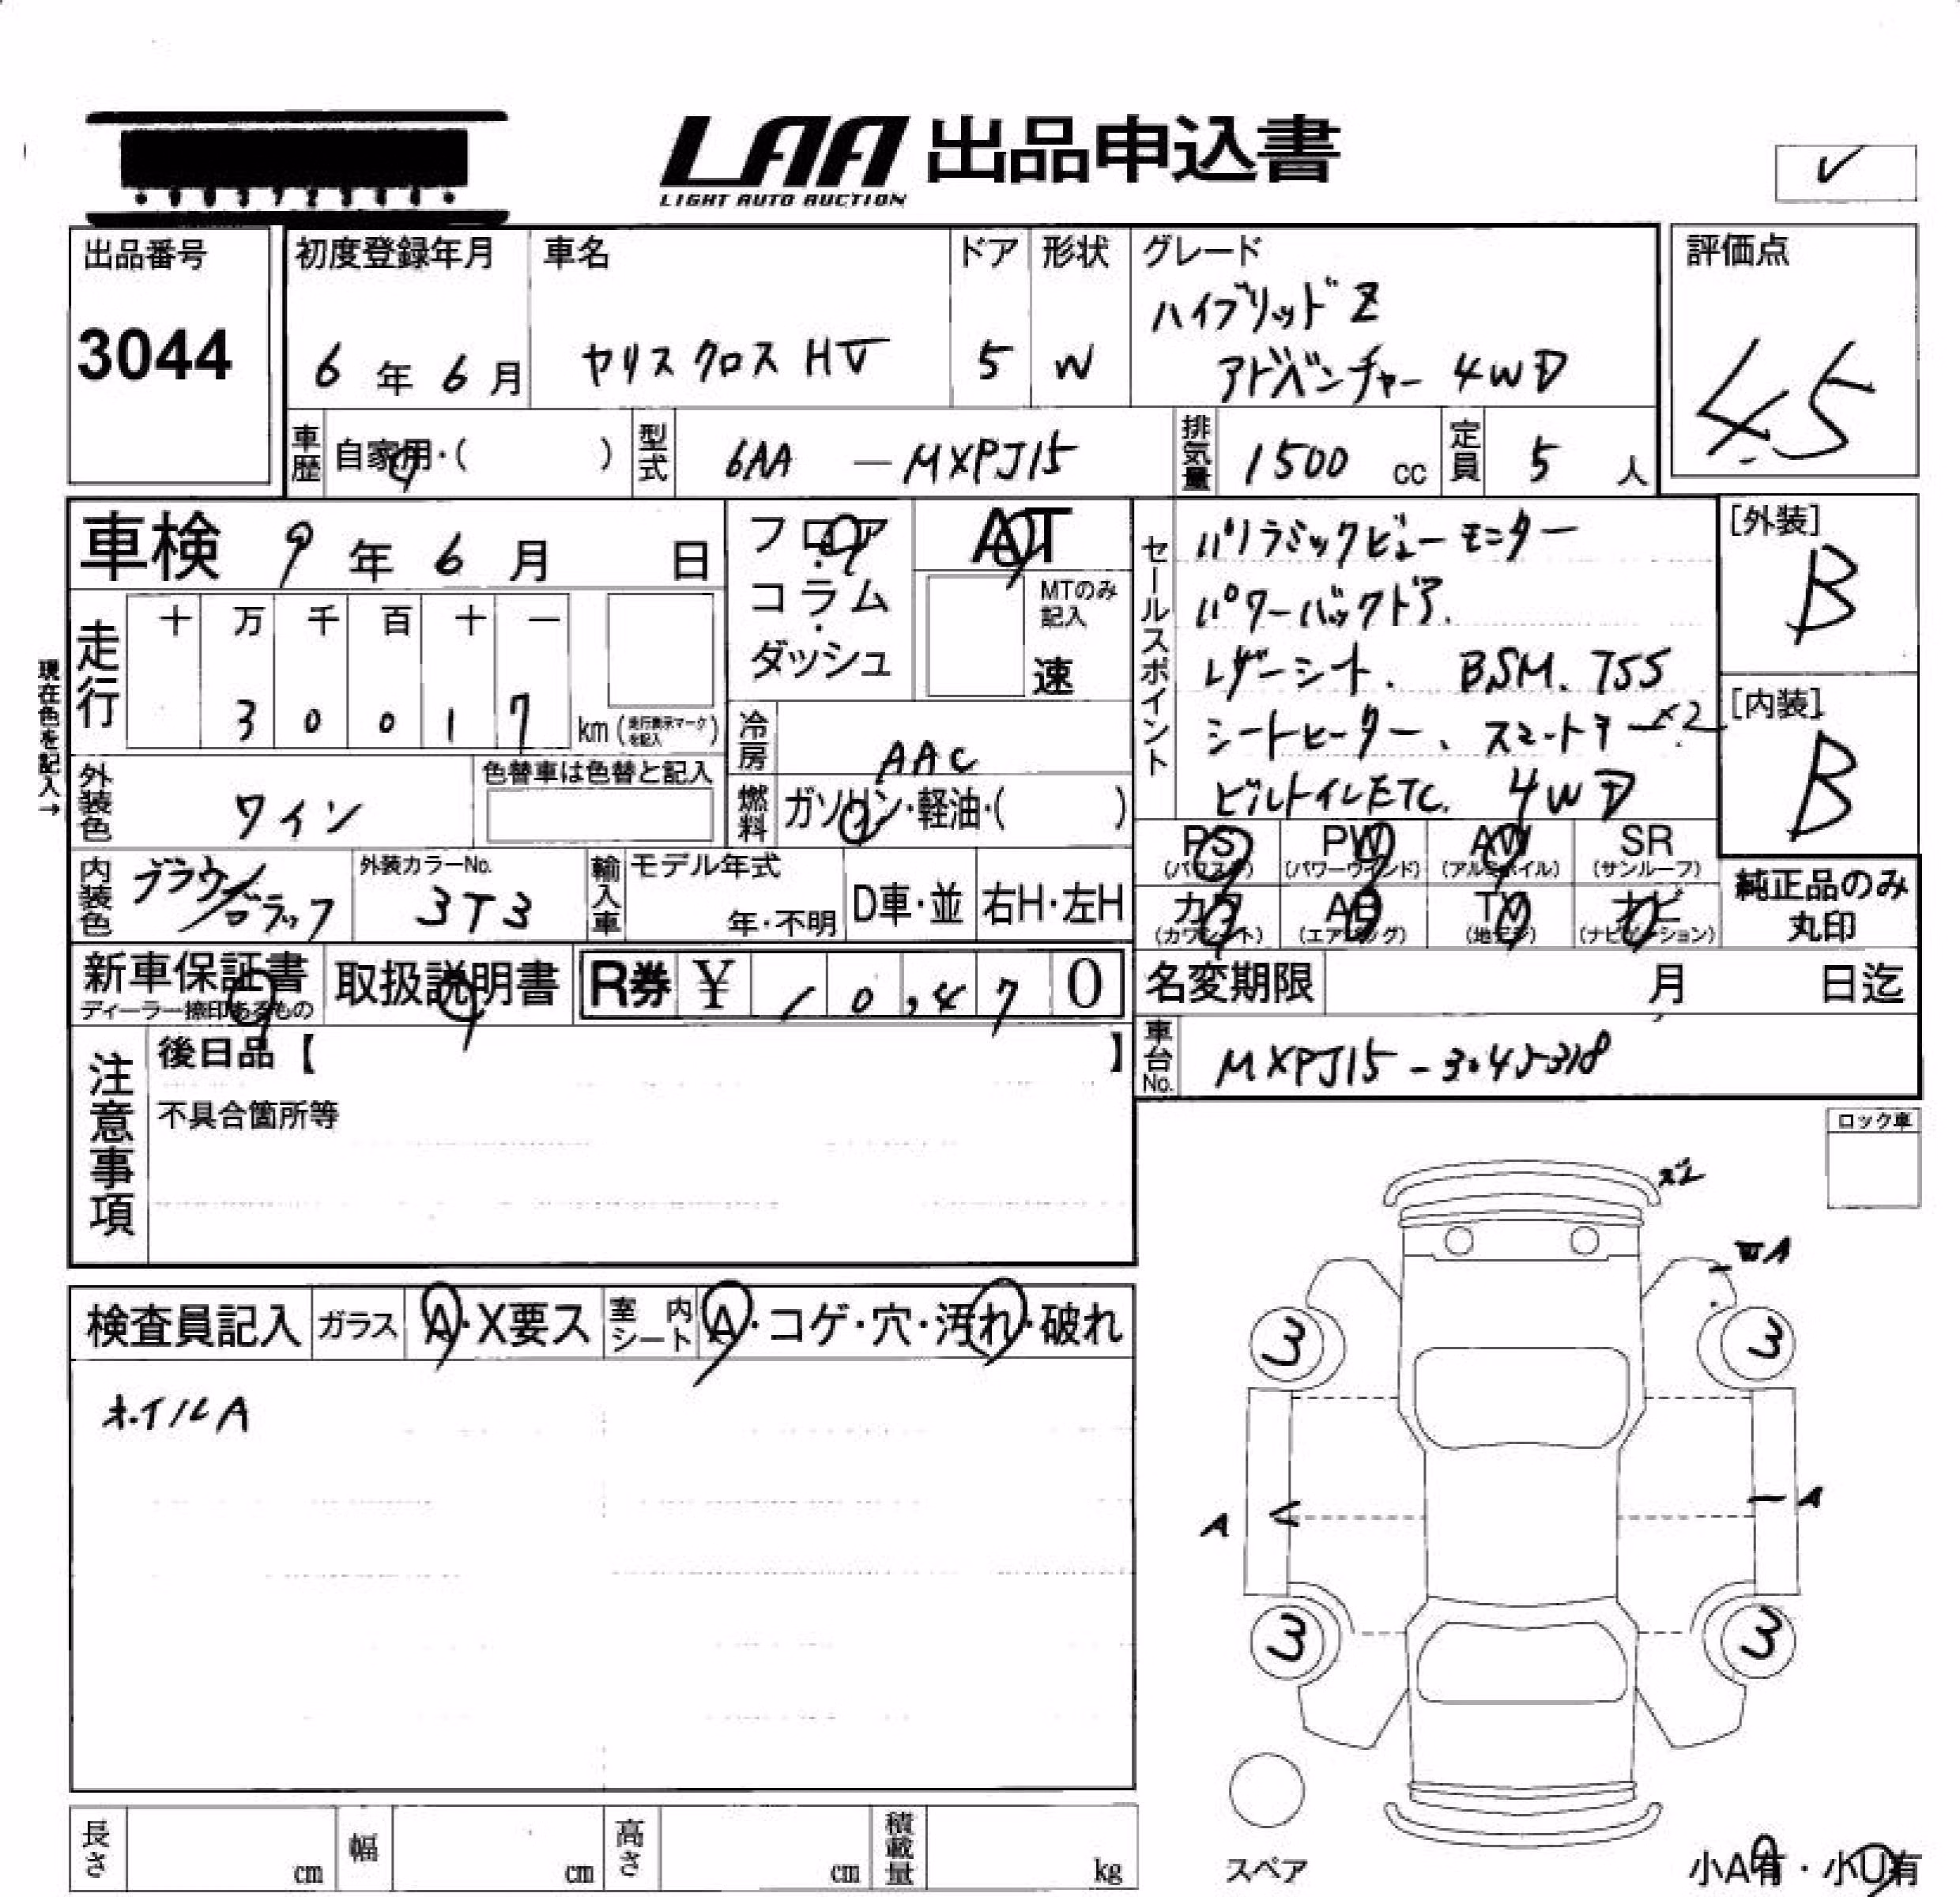 LAA 出品申込書
LIGHT AUTO AUCTION
出品番号
3044
初度登録年月
6年6月
車名
ヤリスクロス HV
ドア
5
形状
W
グレード
ハイブリッド Z
アドベンチャー 4WD
評価点
4.5
車歴
自家用・( )
型式
6AA — MXPJ15
排気量
1500 cc
定員
5 人
車検 9年6月 日
フロア・コラム・ダッシュ
AT
MTのみ記入
速
走行
十 万 千 百 十 一
3 0 0 1 7
km (走行表示マークを記入)
現在色を記入→
冷房
AAC
外装色
ワイン
色替車は色替と記入
燃料
ガソリン・軽油・( )
内装色
ブラウン/ブラック
外装カラーNo.
3T3
輸入車
モデル年式
年・不明
D車・並
右H・左H
セールスポイント
パノラミックビューモニター
パワーバックドア.
レザーシート. BSM. TSS
シートヒーター、スマートキー×2
ビルトインETC. 4WD
[外装]
B
[内装]
B
PS (パワステ)
PW (パワーウインド)
AW (アルミホイル)
SR (サンルーフ)
カワ (カワシート)
AB (エアバッグ)
TV (地デジ)
ナビ (ナビゲーション)
純正品のみ丸印
新車保証書
ディーラー捺印あるもの
取扱説明書
R券 ¥ 10,470
名変期限 月 日迄
車台No.
MXPJ15-3045318
注意事項
後日品【 】
不具合箇所等
ロック車
検査員記入
ガラス
A・X要ス
室内シート
A・コゲ・穴・汚れ・破れ
ホイルA
A
A
A
3
3
3
3
スペア
長さ cm
幅 cm
高さ cm
積載量 kg
小A有・小U有